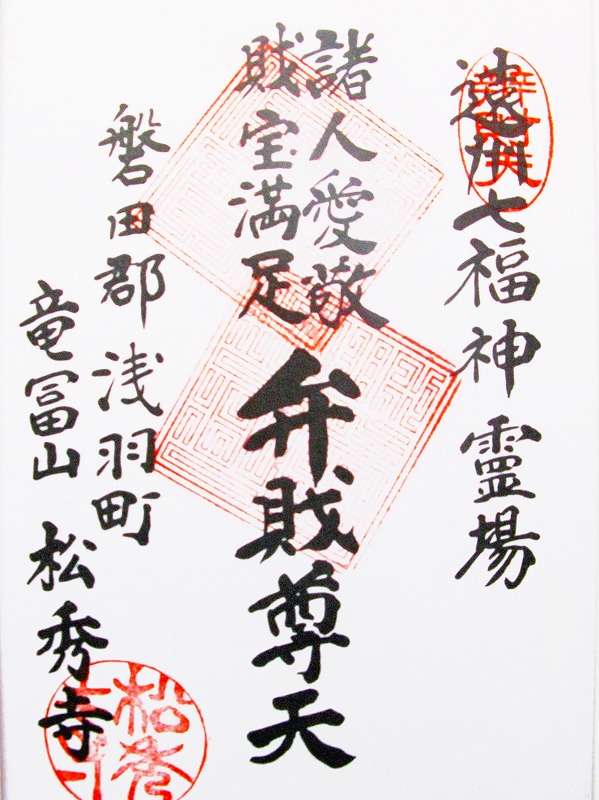 遠州七福神霊場
諸人愛敬
財宝満足
弁財尊天
磐田郡浅羽町
竜冨山 松秀寺